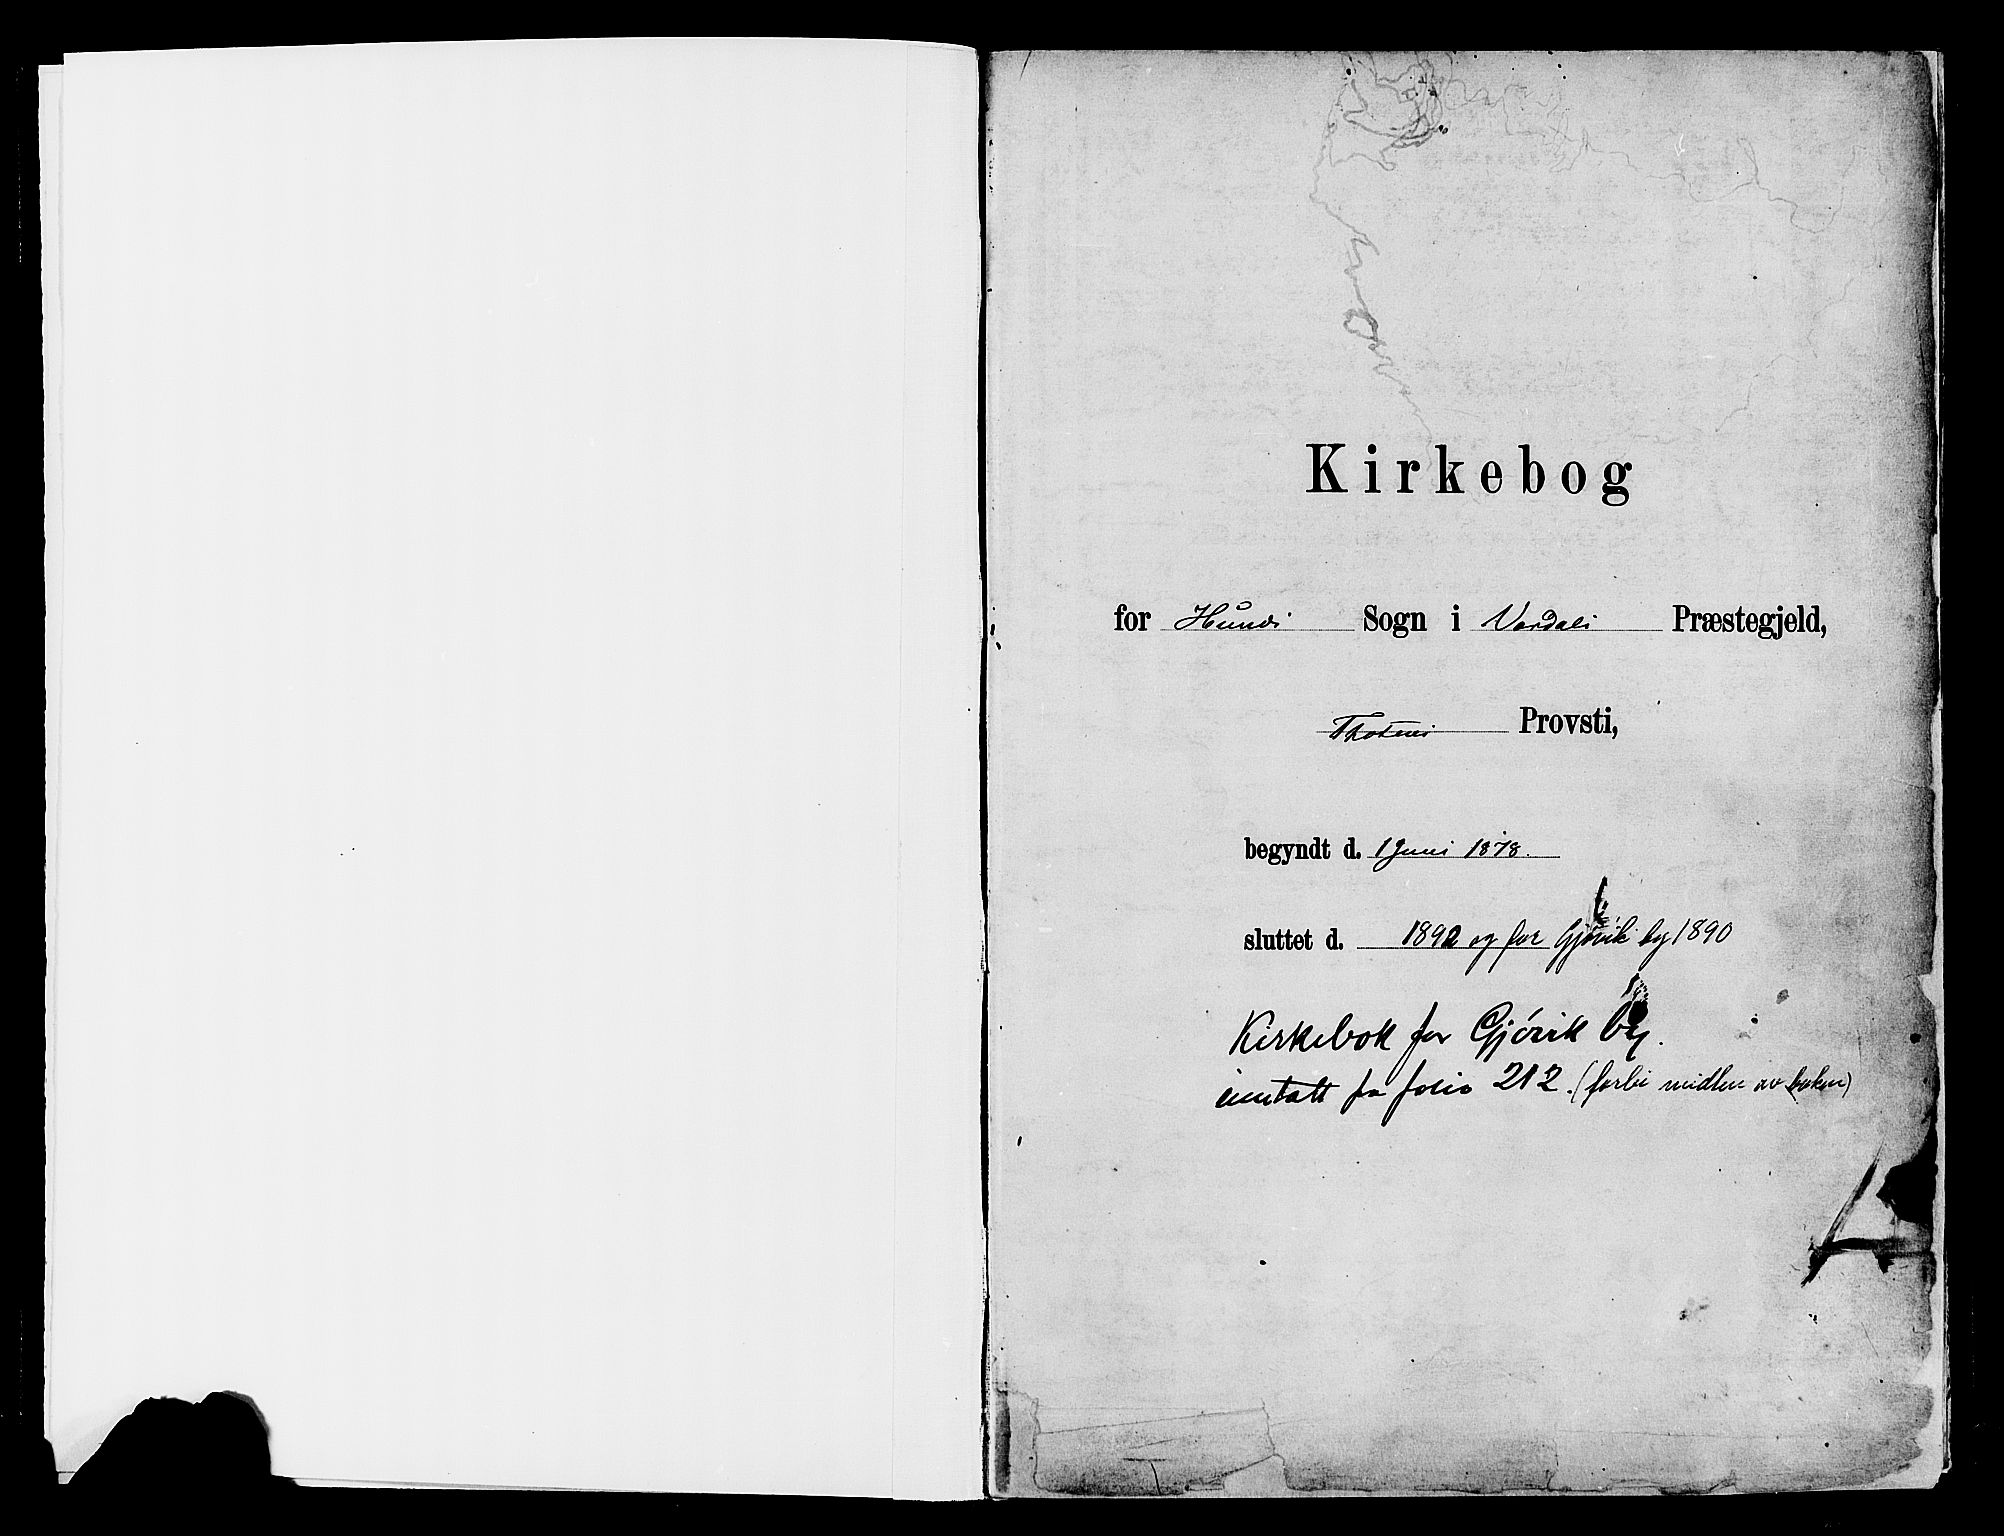 Kirkebog
for Hunds Sogn i Vardals Præstegjeld,
Thotens Provsti,
begyndt d. 1 Juni 1878.
sluttet d. 1892 og for Gjøvik by 1890
Kirkebok for Gjövik by.
inntatt fra folio 212. (forbi midten av boken)